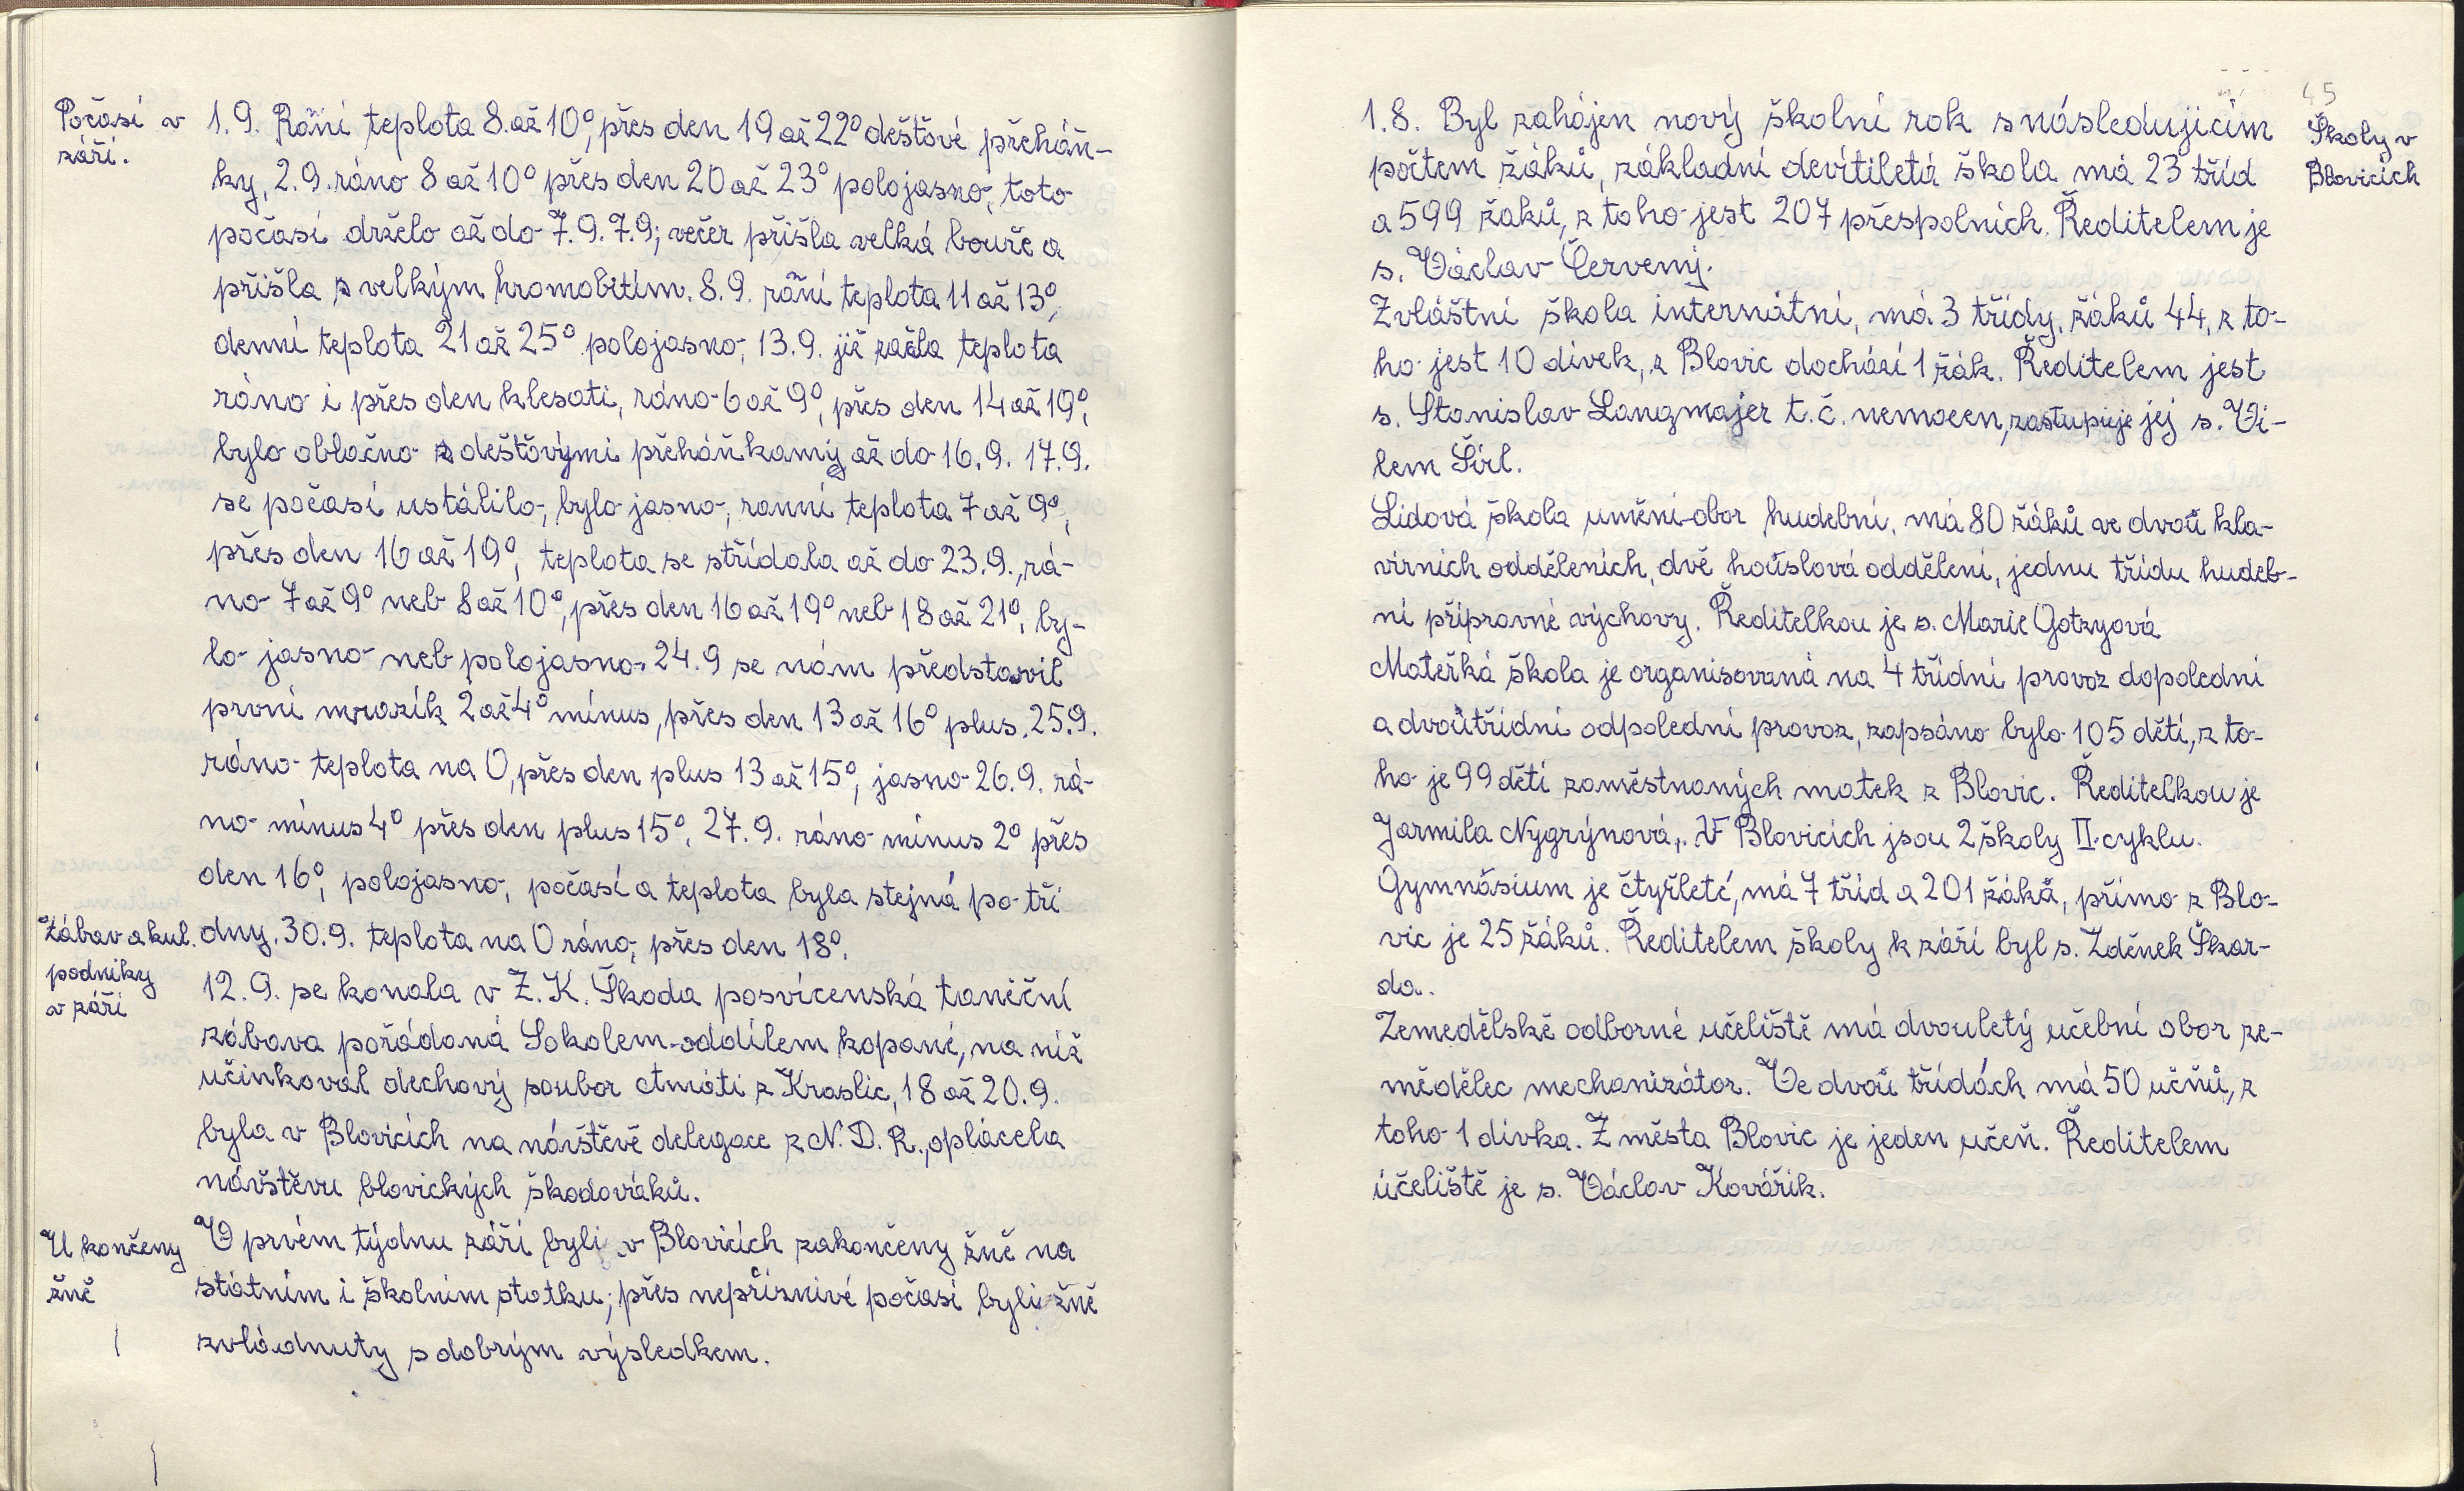 Počasí v
září.
1.9. Raňí teplota 8 až 10°, přes den 19 až 22° dešťové přeháň-
ky, 2.9. ráno 8 až 10° přes den 20 až 23° polojasno, toto
počasí drželo až do 7.9. 7.9; večer přišla velká bouře a
přišla s velkým hromobitím. 8.9. raňí teplota 11 až 13°,
denní teplota 21 až 25° polojasno, 13.9. již začla teplota
ráno i přes den klesati, ráno 6 až 9°, přes den 14 až 19°,
bylo oblačno s dešťovými přeháňkamy až do 16.9. 17.9.
se počasí ustálilo, bylo jasno, ranní teplota 7 až 9°,
přes den 16 až 19°, teplota se střídala až do 23.9., rá-
no 7 až 9° neb 8 až 10°, přes den 16 až 19° neb 18 až 21°, by-
lo jasno neb polojasno. 24.9 se nám představil
první mrazík 2 až 4° mínus, přes den 13 až 16° plus. 25.9.
ráno teplota na 0, přes den plus 13 až 15°, jasno 26.9. rá-
no mínus 4° přes den plus 15°, 27.9. ráno mínus 2° přes
den 16°, polojasno, počasí a teplota byla stejná po tři
dny. 30.9. teplota na 0 ráno, přes den 18°.
Zábav a kul.
podniky
v září
12.9. se konala v Z.K. Škoda posvícenská taneční
zábava pořádaná Sokolem-oddílem kopané, na níž
učinkoval dechový soubor Amati z Kraslic, 18 až 20.9.
byla v Blovicích na návštěvě delegace z N.D.R., oplácela
návštěvu blovických škodováků.
U končeny
žně
V prvém týdnu září byli v Blovicích zakončeny žně na
státním i školním statku; přes nepříznivé počasí byli žně
zvládnuty s dobrým výsledkem.
45
Školy v
Blovicích
1.8. Byl zahájen nový školní rok s následujícím
počtem žáků, základní devítiletá škola má 23 tříd
a 599 žaků, z toho jest 207 přespolních. Ředitelem je
s. Václav Červený.
Zvláštní škola internátní, má 3 třídy, žáků 44, z to-
ho jest 10 dívek, z Blovic dochází 1 žák. Ředitelem jest
s. Stanislav Langmajer t.č. nemocen, zastupuje jej s. Vi-
lem Šírl.
Lidová škola umění-obor hudební, má 80 žáků ve dvoů kla-
vírních odděleních, dvě hoůslová oddělení, jednu třídu hudeb-
ní přípravné výchovy. Ředitelkou je s. Marie Gotzyová
Mateřká škola je organisovaná na 4 třídní provoz dopolední
a dvoůtřídní odpolední provoz, zapsáno bylo 105 dětí, z to-
ho je 99 dětí zaměstnaných matek z Blovic. Ředitelkou je
Jarmila Nygrýnová,. V Blovicích jsou 2 školy II. cyklu.
Gymnásium je čtyřleté, má 7 tříd a 201 žáků, přímo z Blo-
vic je 25 žáků. Ředitelem školy k září byl s. Zděnek Škar-
da.
Zemedělské odborné učeliště má dvouletý učební obor ze-
mědělec mechanizátor. Ve dvoů třídách má 50 učňů, z
toho 1 dívka. Z města Blovic je jeden učeň. Ředitelem
účeliště je s. Václav Kovářik.